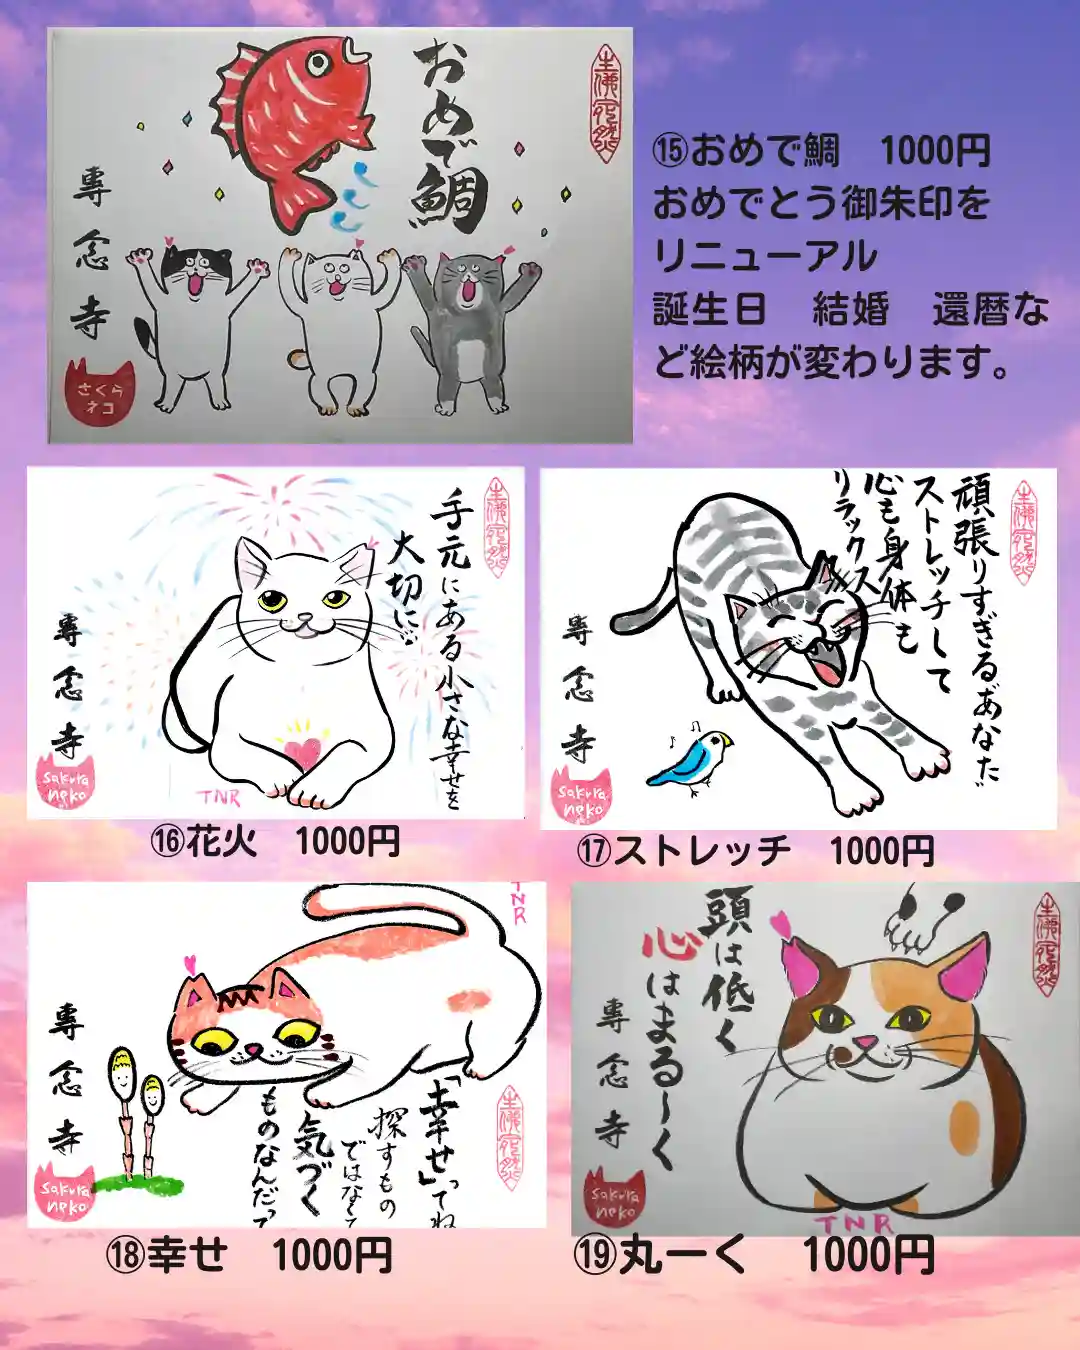 おめで鯛
專念寺
さくら
ネコ
⑮おめで鯛　1000円
おめでとう御朱印を
リニューアル
誕生日　結婚　還暦な
ど絵柄が変わります。
手元にある小さな幸せを
大切に…
專念寺
sakura
neko
TNR
⑯花火　1000円
頑張りすぎるあなた
ストレッチして
心も身体も
リラックス
專念寺
sakura
neko
⑰ストレッチ　1000円
TNR
「幸せ」ってね
探すもの
ではなくて
気づく
ものなんだって
專念寺
sakura
neko
⑱幸せ　1000円
頭は低く
心はまる～く
專念寺
sakura
neko
TNR
⑲丸ーく　1000円